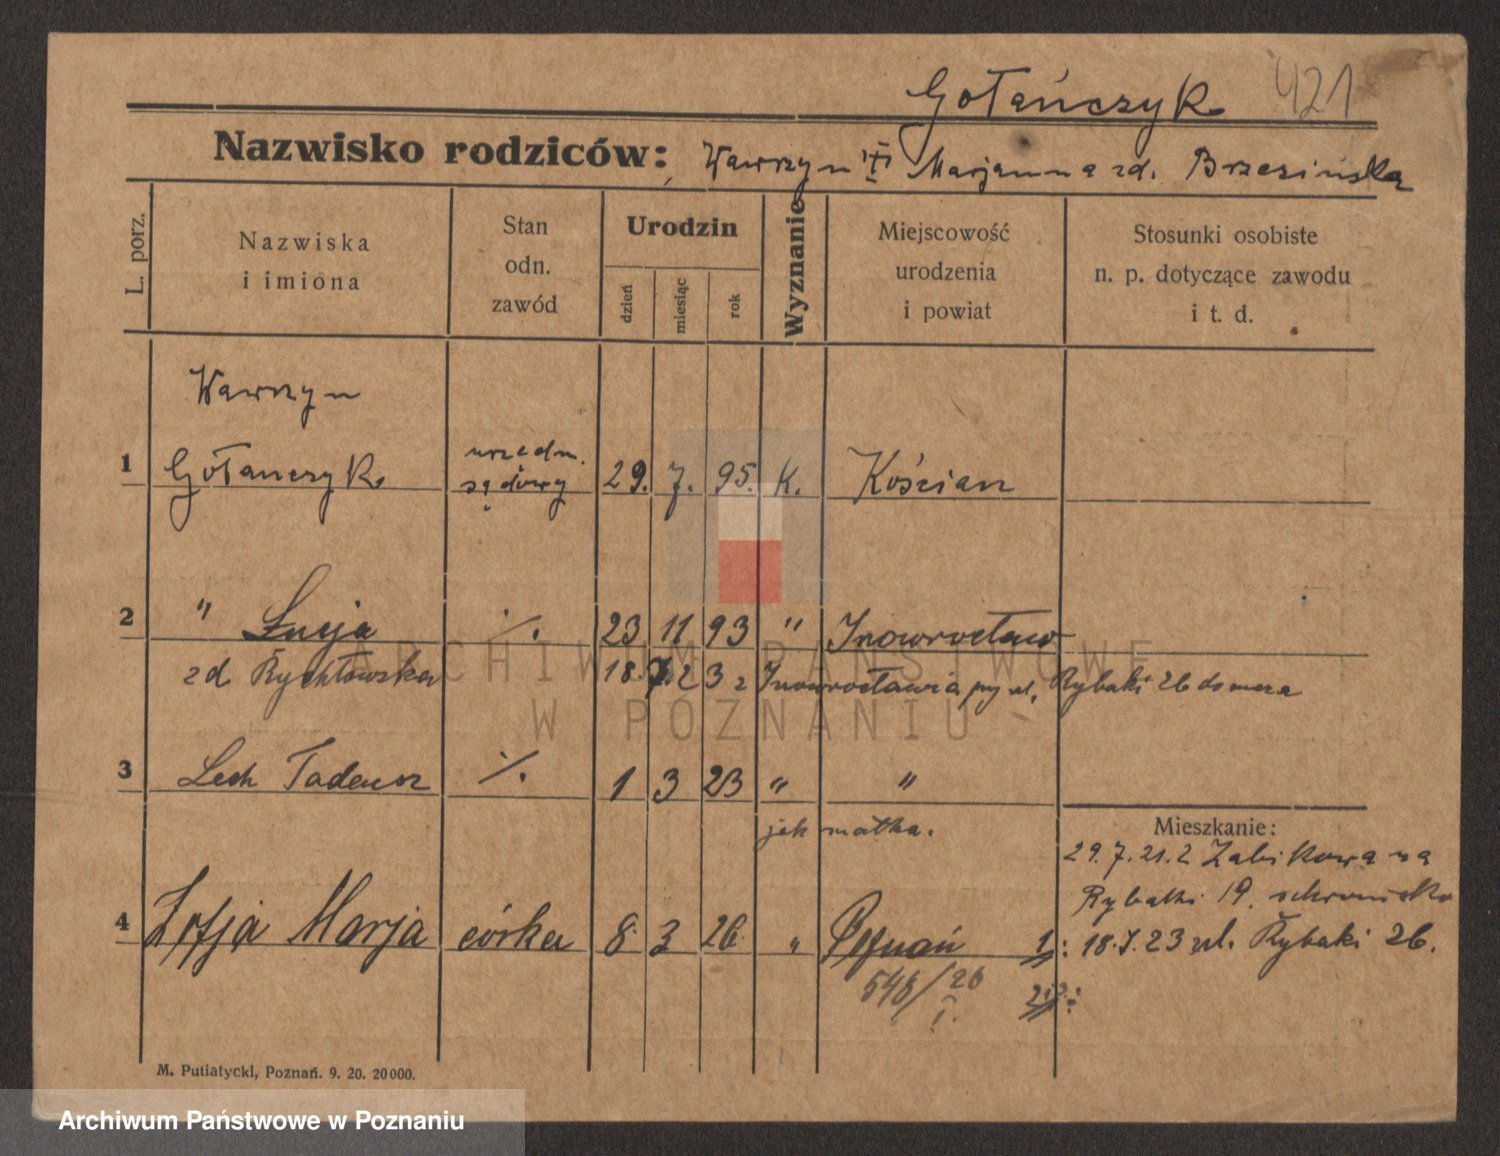 Gołańczyk 421
Nazwisko rodziców: Wawrzyn Marjanna zd. Brzezińska
L. porz.
Nazwiska
i imiona
Stan
odn.
zawód
Urodzin
dzień
miesiąc
rok
Wyznanie
Miejscowość
urodzenia
i powiat
Stosunki osobiste
n. p. dotyczące zawodu
i t. d.
Wawrzyn
1 Gołańczyk urzędn. sądowy 29. 7. 95. K. Kościan
2 " Łucja ·/. 23 11 93 " Inowrocław
zd. Rychłowska 18.7.23 z Inowrocławia ul. Rybaki 26 do męża
3 Lech Tadeusz ·/. 1 3 23 " "
jak matka.
Mieszkanie:
29.7.21. z Żabikowa na
Rybaki 19. schronisko
4 Zofja Marja córka 8 3 26 " Poznań 1: 18.7.23 ul. Rybaki 26.
548/26
I.
M. Putiatycki, Poznań. 9. 20. 20000.
ARCHIWUM PAŃSTWOWE
W POZNANIU
Archiwum Państwowe w Poznaniu